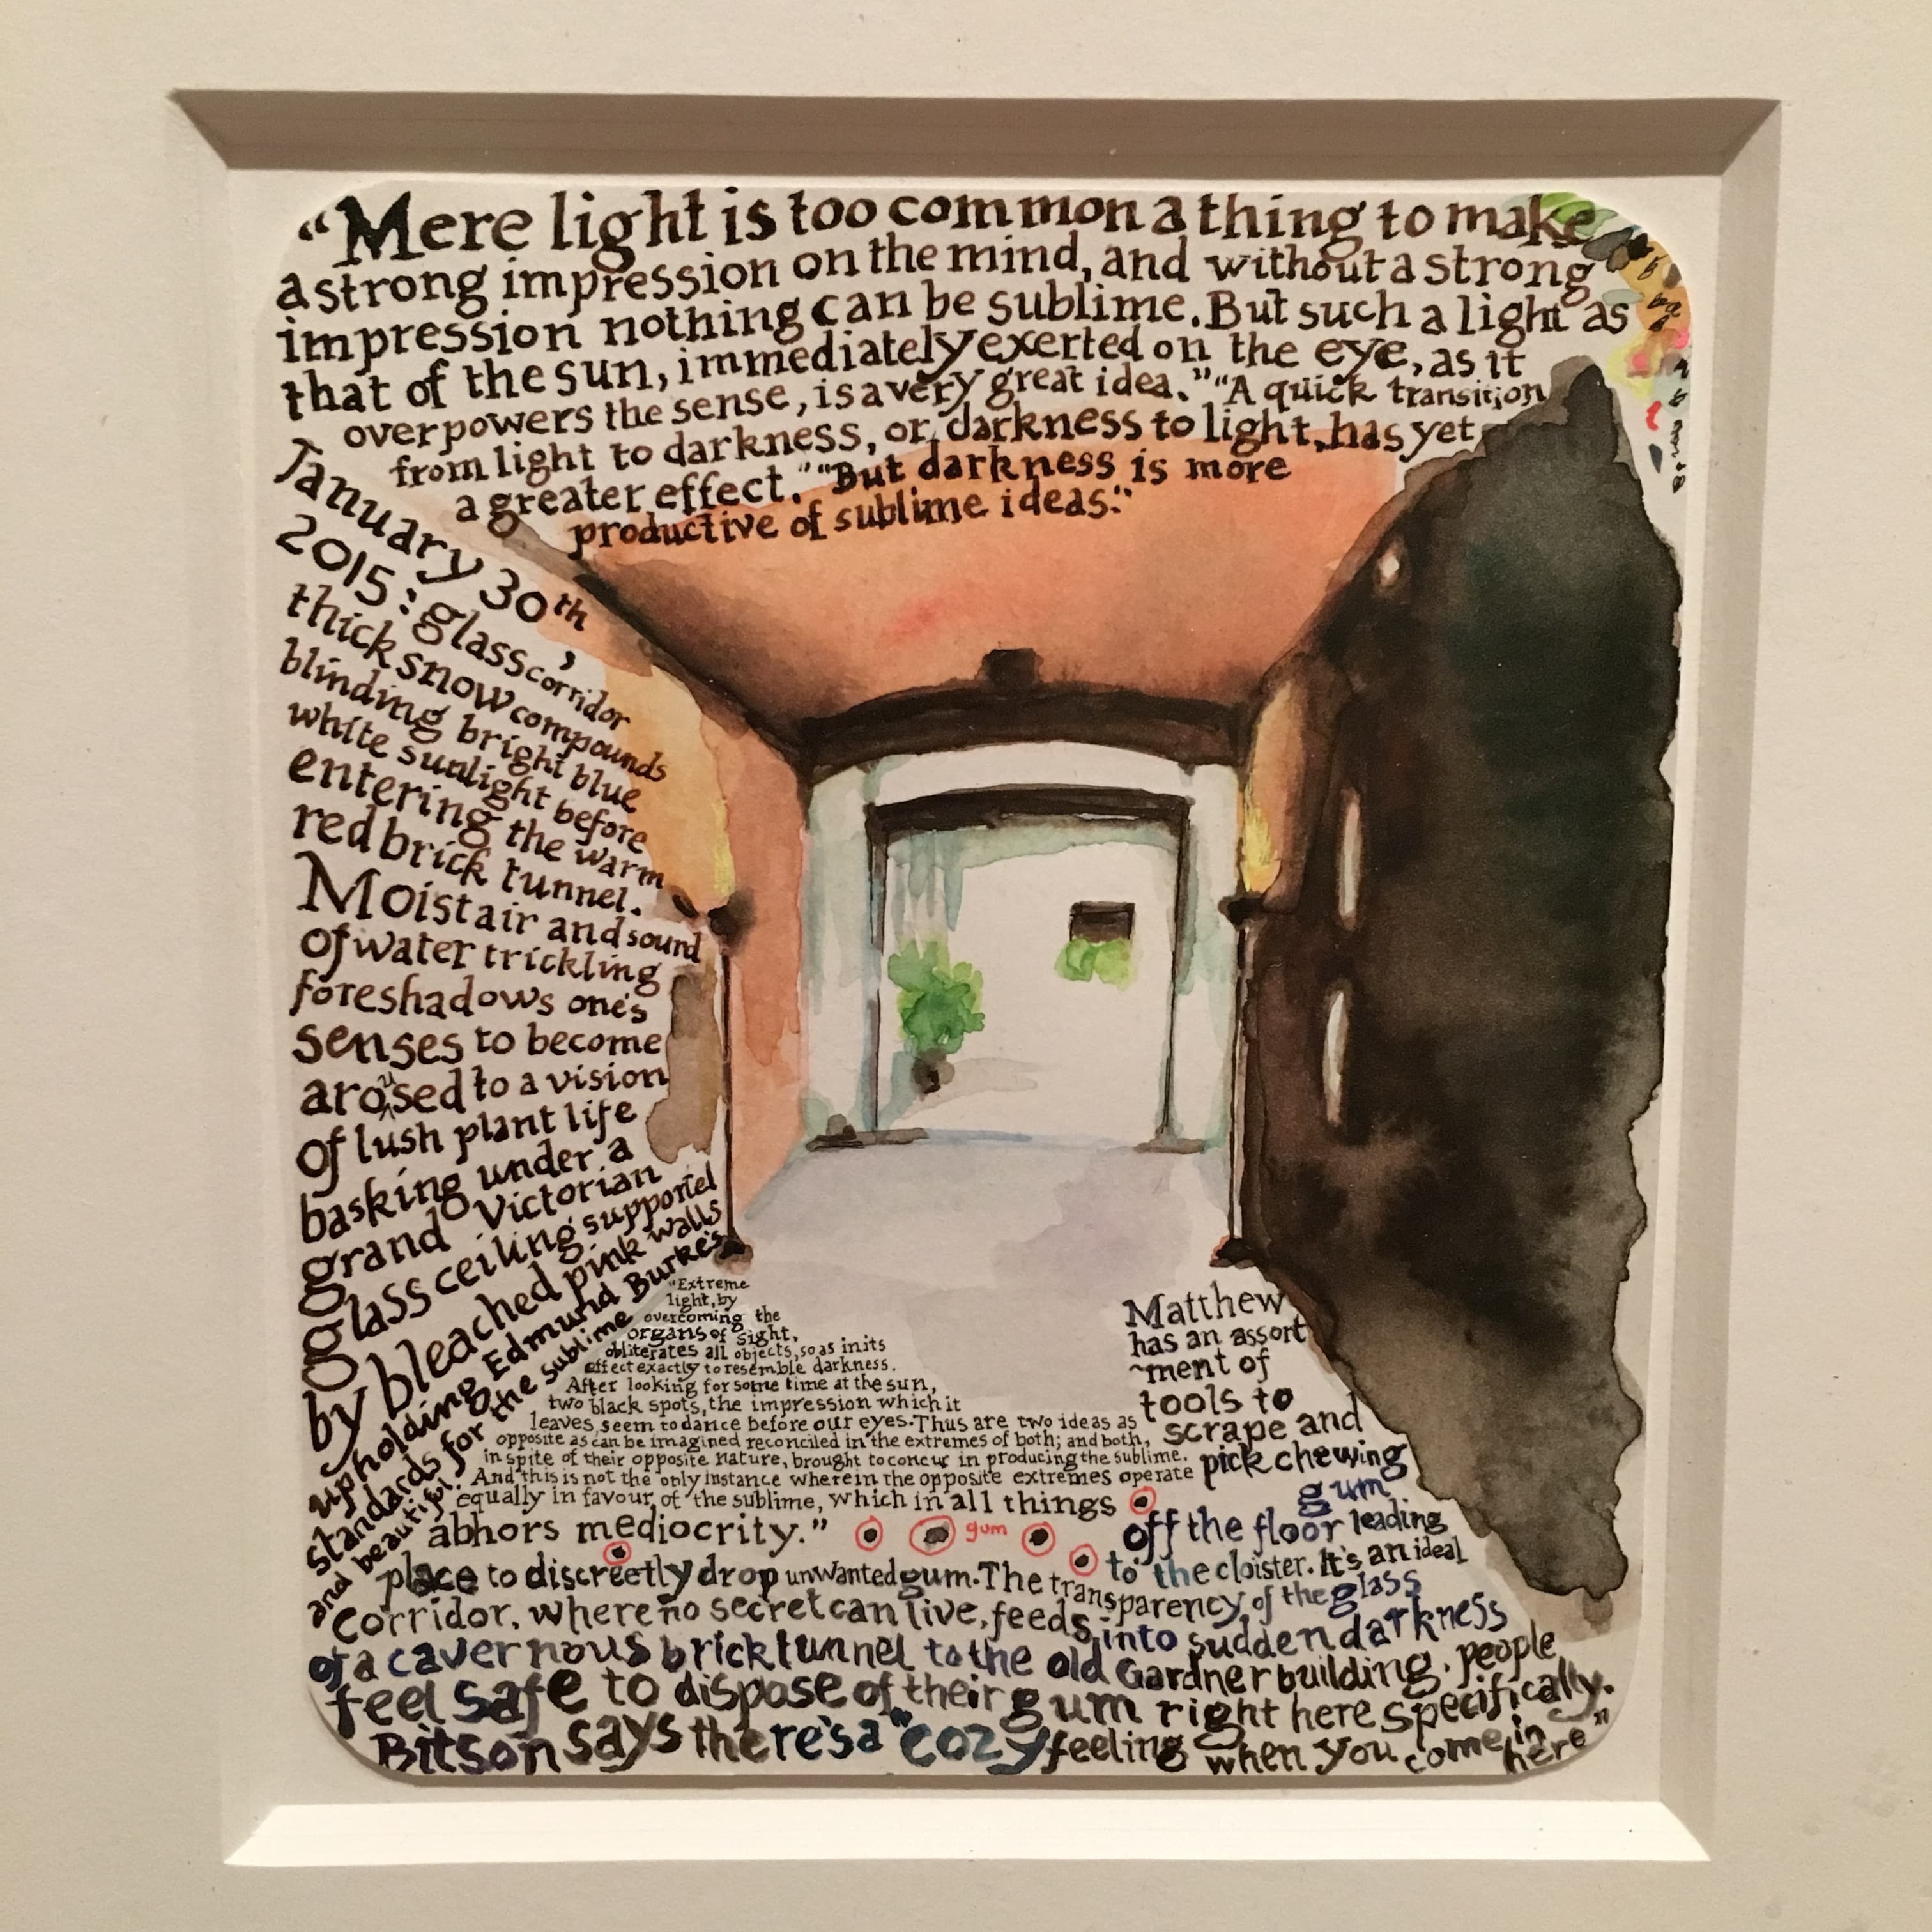 “Mere light is too common a thing to make
a strong impression on the mind, and without a strong
impression nothing can be sublime. But such a light as
that of the sun, immediately exerted on the eye, as it
overpowers the sense, is a very great idea.” “A quick transition
from light to darkness, or, darkness to light, has yet
a greater effect.” “But darkness is more
productive of sublime ideas.”
January 30th,
2015: glass corridor
thick snow compounds
blinding bright blue
white sunlight before
entering the warm
red brick tunnel.
Moist air and sound
of water trickling
foreshadows one's
senses to become
arousedto a vision
of lush plant life
basking under a
grand Victorian
glass ceiling supported
by bleached pink walls
upholding Edmund Burke's
standards for the sublime
and beautiful.
“Extreme
light, by
overcoming the
organs of sight,
obliterates all objects, so as in its
effect exactly to resemble darkness.
After looking for some time at the sun,
two black spots, the impression which it
leaves, seem to dance before our eyes. Thus are two ideas as
opposite as can be imagined reconciled in the extremes of both; and both,
in spite of their opposite nature, brought to concur in producing the sublime.
And this is not the only instance wherein the opposite extremes operate
equally in favour of the sublime, which in all things
abhors mediocrity.”
gum
Matthew
has an assort
~ment of
tools to
scrape and
pick chewing
gum
off the floor leading
to the cloister. It's an ideal
place to discreetly drop unwanted gum. The transparency of the glass
corridor, where no secret can live, feeds into sudden darkness
of a cavernous brick tunnel to the old Gardner building. people
feel safe to dispose of their gum right here specifically.
Bitson says there's a “cozy feeling when you come in here”